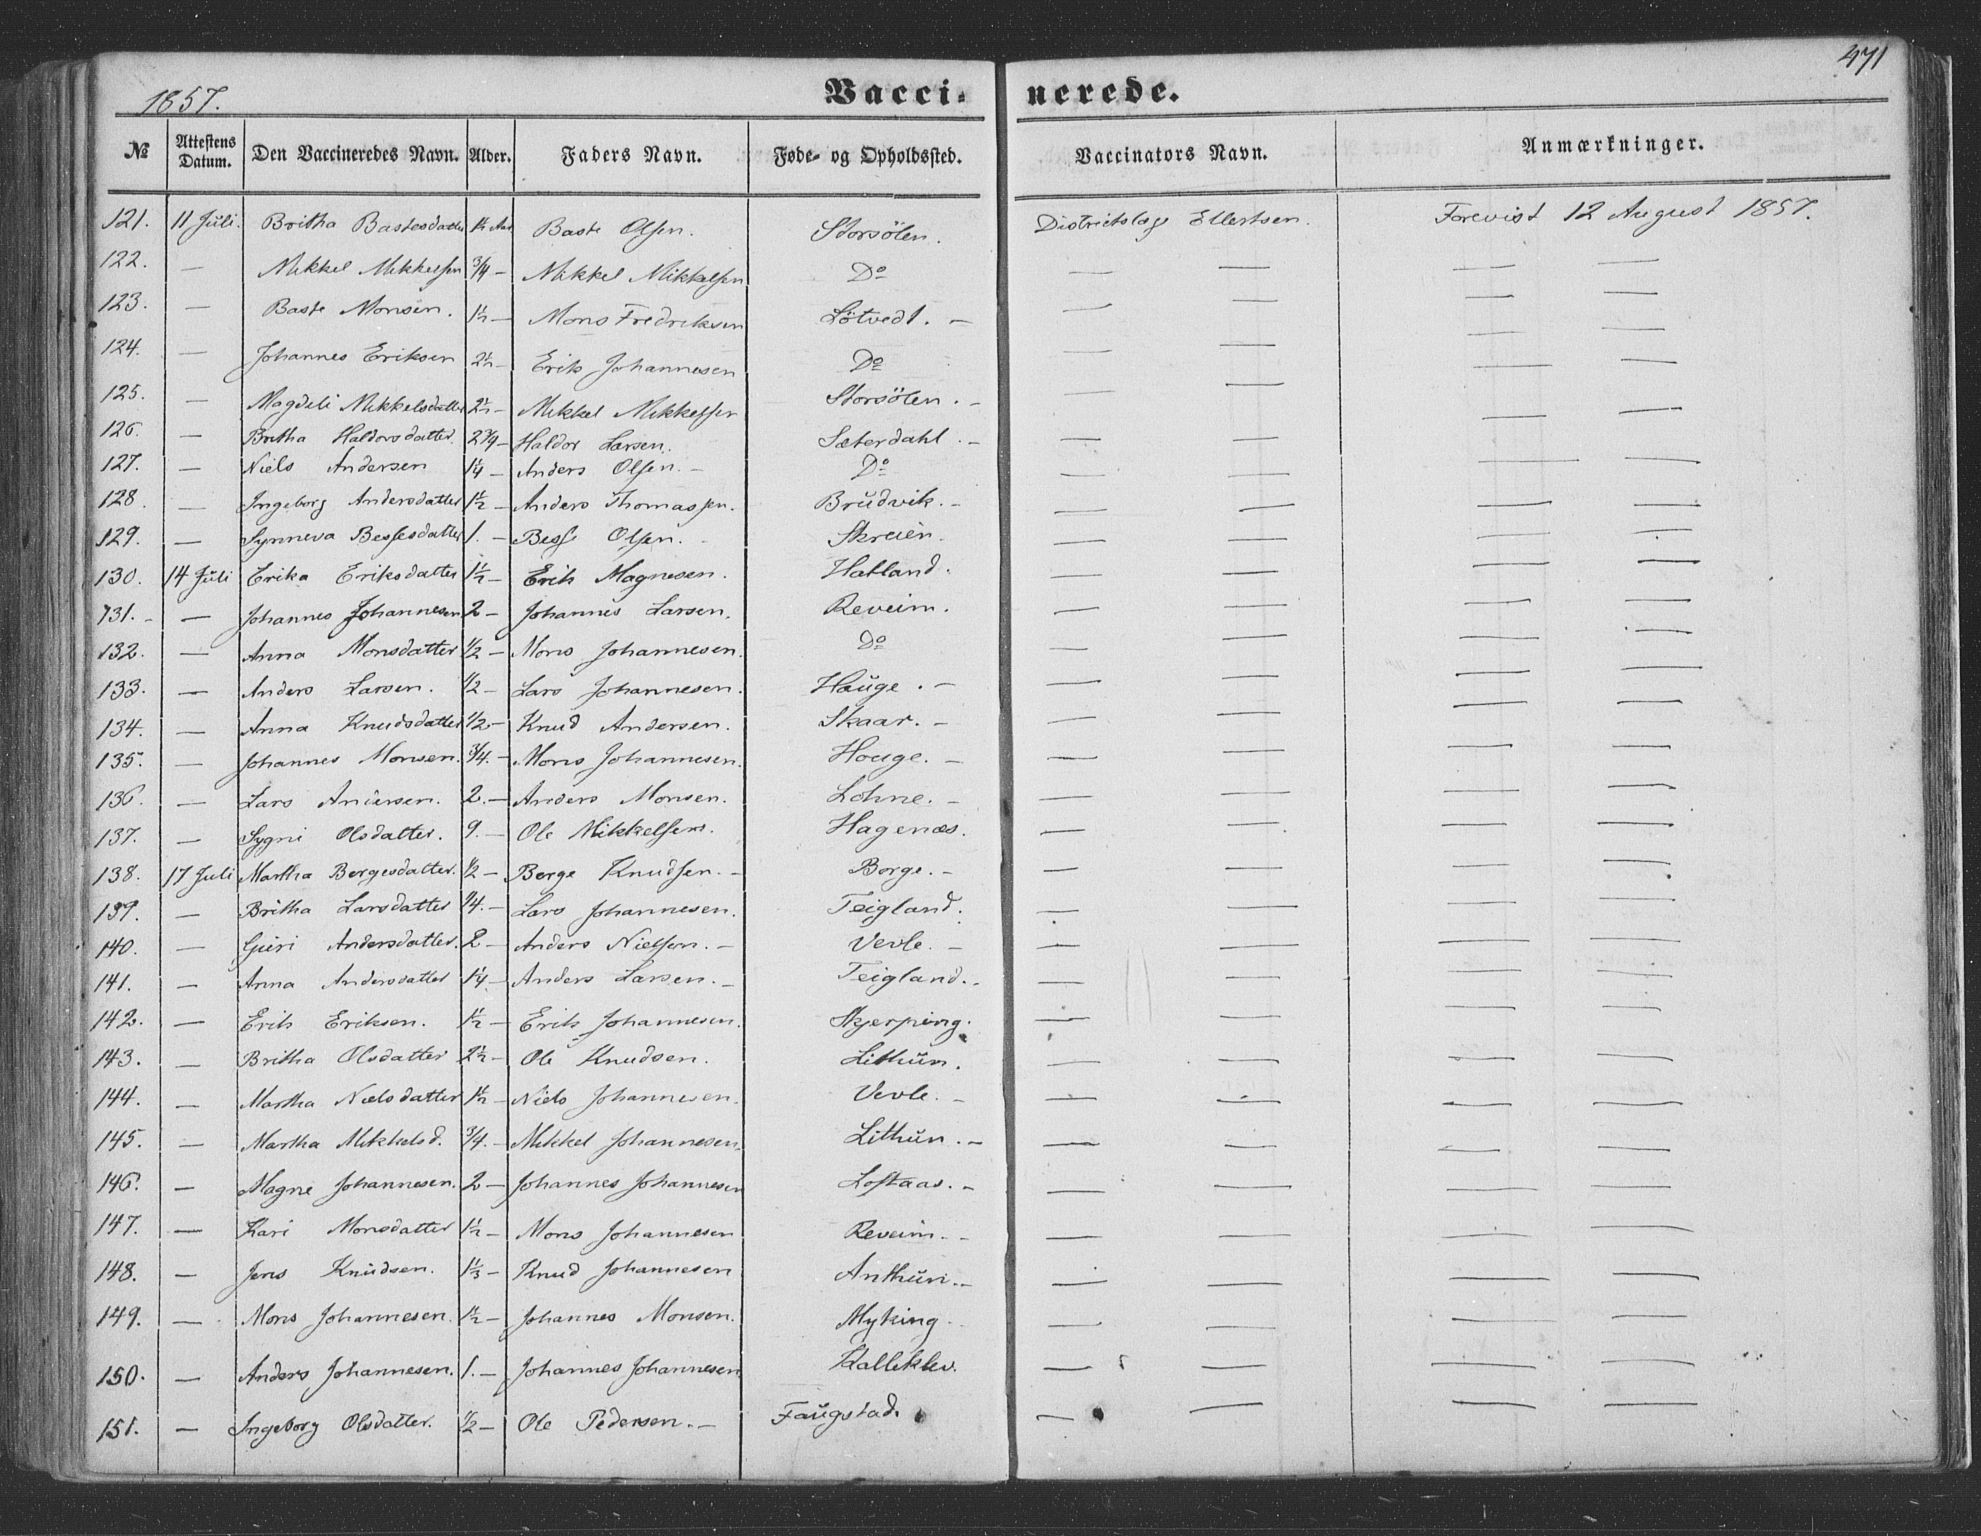 471
1857.
Vacci- nerede.
№ Attestens Datum. Den Vaccineredes Navn. Alder. Faders Navn. Føde- og Opholdssted. Vaccinators Navn. Anmærkninger.
121. 11 Juli. Britha Bastesdatter 1½ Aar Baste Olsen. Storsölen. Districtslæg Ellertsen. Forevist 12 August 1857.
122. — Mikkel Mikkelsen ¾ — Mikkel Mikkelsen Do — — — —
123. — Baste Monsen. 1½ — Mons Fredriksen Lötvedt. — — — — —
124. — Johannes Eriksen 2½ — Erik Johannesen Do — — — —
125. — Magdeli Mikkelsdatter 2½ — Mikkel Mikkelsen Storsölen. — — — — —
126. — Britha Haldorsdatter. 2¾ — Haldor Larsen. Sæterdahl. — — — — —
127. — Niels Andersen 1¼ — Anders Olsen. — Do — — — —
128. — Ingeborg Andersdatter 1½ — Anders Thomassen. Brudvik. — — — — —
129. — Synneva Bessesdatter 1. — Besse Olsen. Skreien. — — — —
130. 14 Juli Erika Eriksdatter 1½ — Erik Magnesen. Hatland. — — — —
131. — Johannes Johannesen 2 — Johannes Larsen. Reveim. — — — —
132. — Anna Monsdatter ½ — Mons Johannesen. Do — — — —
133. — Anders Larsen. ½ — Lars Johannesen. Hauge. — — — — —
134. — Anna Knudsdatter ½ — Knud Andersen. Skaar. — — — — —
135. — Johannes Monsen. ¾. — Mons Johannesen. Houge. — — — — —
136. — Lars Andersen. 2. — Anders Monsen. Lohne. — — — — —
137. — Sygni Olsdatter. 9. — Ole Mikkelsen. Hagenæs. — — — —
138. 17 Juli Martha Bergesdatter. ½ — Berge Knudsen. — Borge. — — — — —
139. — Britha Larsdatter ¼. — Lars Johannesen. Teigland. — — — —
140. — Guri Andersdatter. 2 — Anders Nielsen. — Vevle. — — — — —
141. — Anna Andersdatter 1¼ — Anders Larsen. — Teigland. — — — — —
142. — Erik Eriksen. 1½ — Erik Johannesen. Skjerping. — — — —
143. — Britha Olsdatter 2½ — Ole Knudsen. Lithun. — — — —
144. — Martha Nielsdatter 1½ — Niels Johannesen. Vevle. — — — — —
145. — Martha Mikkelsd. ¾. — Mikkel Johannesen. Lithun. — — — — —
146. — Magne Johannesen. 2 — Johannes Johannesen Loftaas. — — — — —
147. — Kari Monsdatter 1½ — Mons Johannesen Reveim. — — — — —
148. — Jens Knudsen. 1⅓ — Knud Johannesen Anthun. — — — — —
149. — Mons Johannesen. 1½ — Johannes Monsen. Myking. — — — —
150. — Anders Johannesen. 1. — Johannes Johannesen Kalleklev. — — — —
151. — Ingeborg Olsdatter. ½ — Ole Pedersen. — Faugstad. — — — —